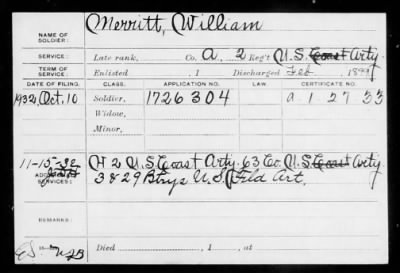 NAME OF SOLDIER: Merritt, William
SERVICE: Late rank, Co. A, 2 Reg't U.S. Coast Arty
TERM OF SERVICE: Enlisted , 1 Discharged Feb , 1899
DATE OF FILING. CLASS. APPLICATION NO. LAW CERTIFICATE NO.
1932, Oct. 10 Soldier, 1726304 A 1 27 33
Widow,
Minor,
11-15-32 H 2 U.S. Coast Arty. 63 Co. U.S. Coast Arty
ADDITIONAL SERVICES: 3 & 29 Btrys U.S. Fld Art.
REMARKS:
Died , 1 , at